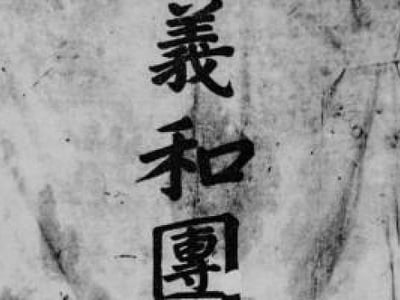 義和團